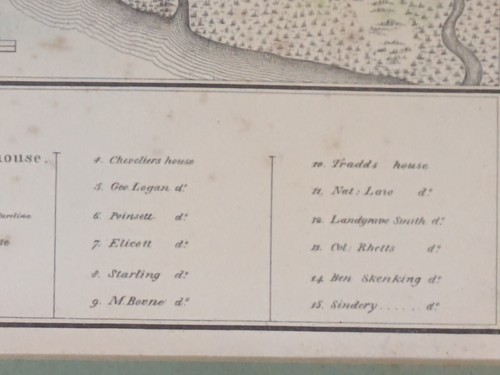 house.
4. Chevoliers house
5. Geo Logan d.º
6. Poinsett d.º
7. Elicott d.º
8. Starling d.º
9. M. Boone d.º
10. Tradds house
11. Nat: Law d.º
12. Landgrave Smith d.º
13. Col: Rhetts d.º
14. Ben Skenking d.º
15. Sindery...... d.º